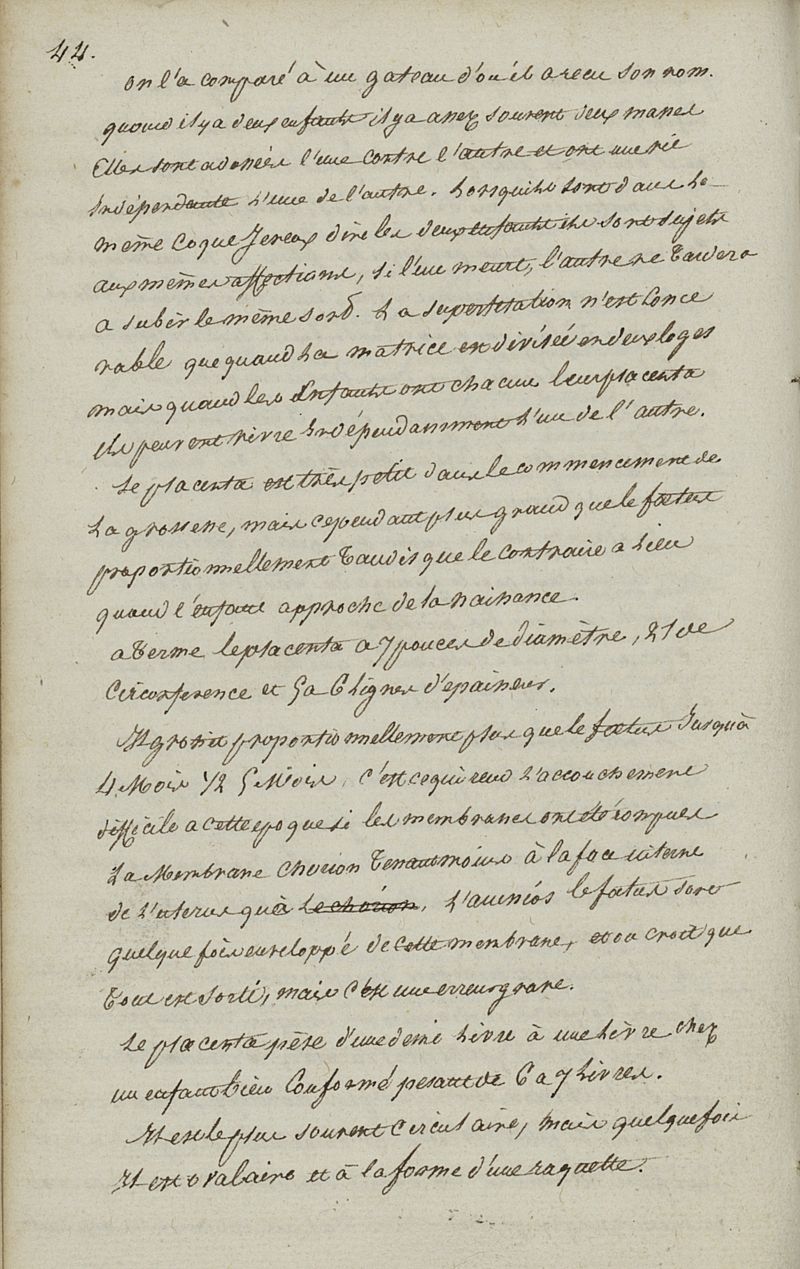 44.
on l'a comparé à un gateau d'où il a recu son nom.
quand il y a deux enfants il y a assez souvent deux masses
Elles sont adossées l'une contre l'autre et ont une vie
Indépendante l'une de l'autre. Lorsquils sont dans le
même coque Jeveux dire les deux enfants ils sont sujets
aux mêmes affections, si l'un meurt, l'autre ne tardera
a subir le même sord. La superfetation n'est Conce
vable que quand la matrice est divisée en deux loges
mais quand les Enfants ont chacun leur placenta
ils peuvent vivre Indépendamment l'un de l'autre.
Le placenta est très petit dans le commencement de
la grossesse, mais cependant plus grand que le fœtus
proportionnellement tandis que le contraire a lieu
quand l'enfant approche de la naissance.
a terme le placenta a 7 pouces de diamètre, 21 de
Circonference et 5 a 6 lignes d'epaisseur.
Il grossit proportionnellement plus que le fœtus Jusqu'à
4 Mois 1/2 5 Mois, c'est ce qui rend l'accouchement
difficile a cette epoque si les membranes ont été rompues
La Membrane Chorion tenant moins à la face interne
de l'uterus qu'à le chorion, l'amnios le fœtus sort
quelque fois enveloppé de cette membrane, et on croit que
tout est sorti, mais c'est une erreur grave.
Le placenta pèse d'une demi livre à une livre chez
un enfant bien Conformé pesant de 6 a 7 livres.
Il est le plus souvent circulaire, mais quelquefois
Il est ovalaire et à la forme d'une raquette.